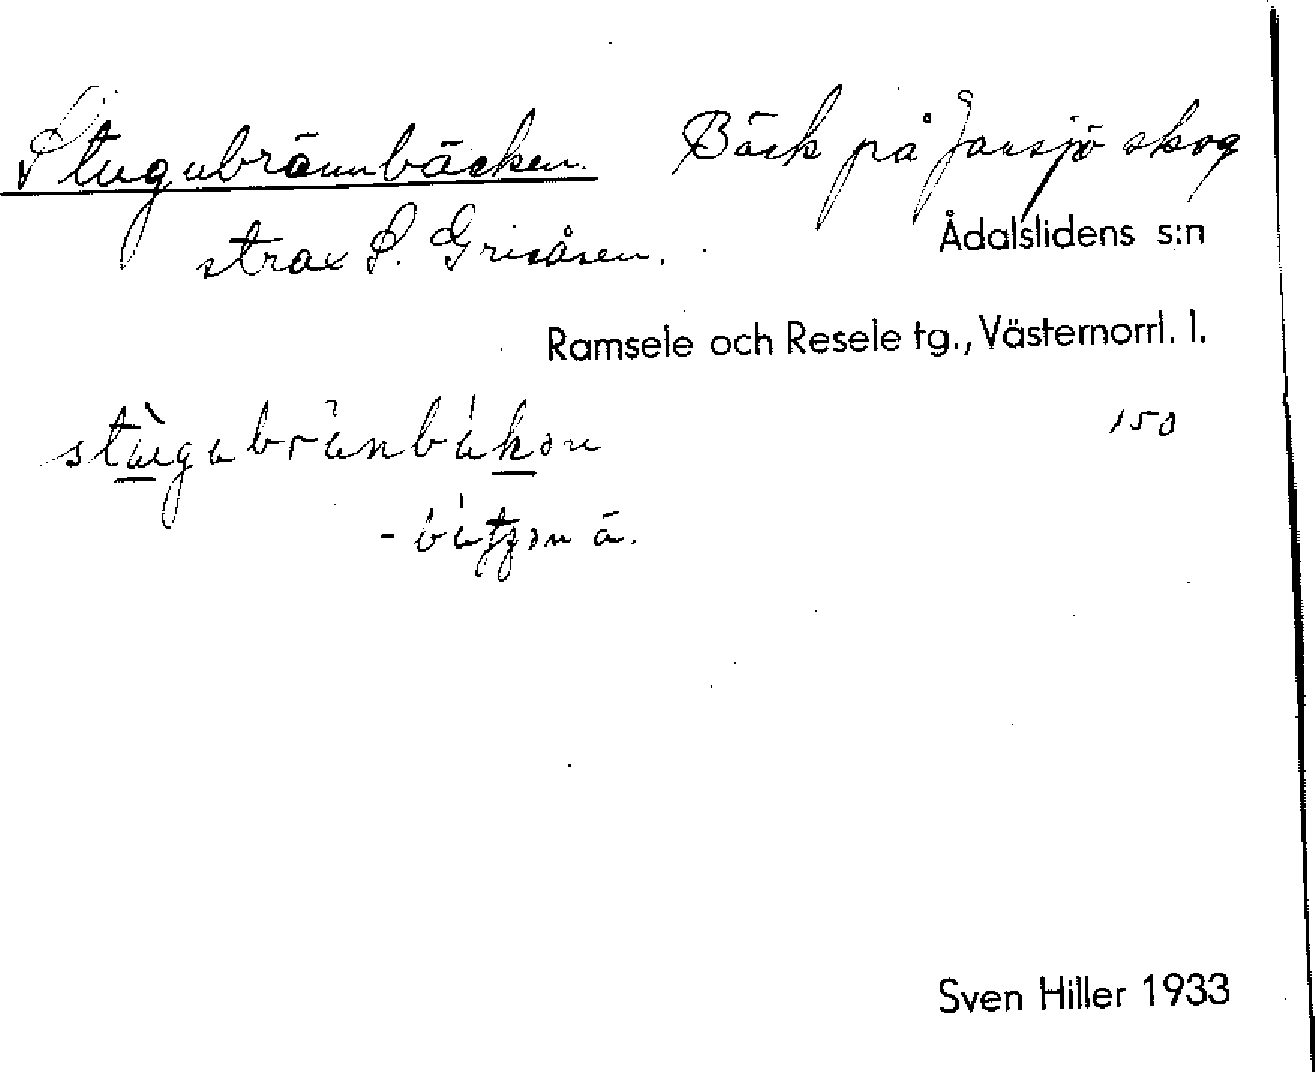 Stugubrännbäcken. Bäck på Jansjö skog
strax S. Grisåsen.
Ådalslidens s:n
Ramsele och Resele tg., Västernorrl. l.
150
Sven Hiller 1933